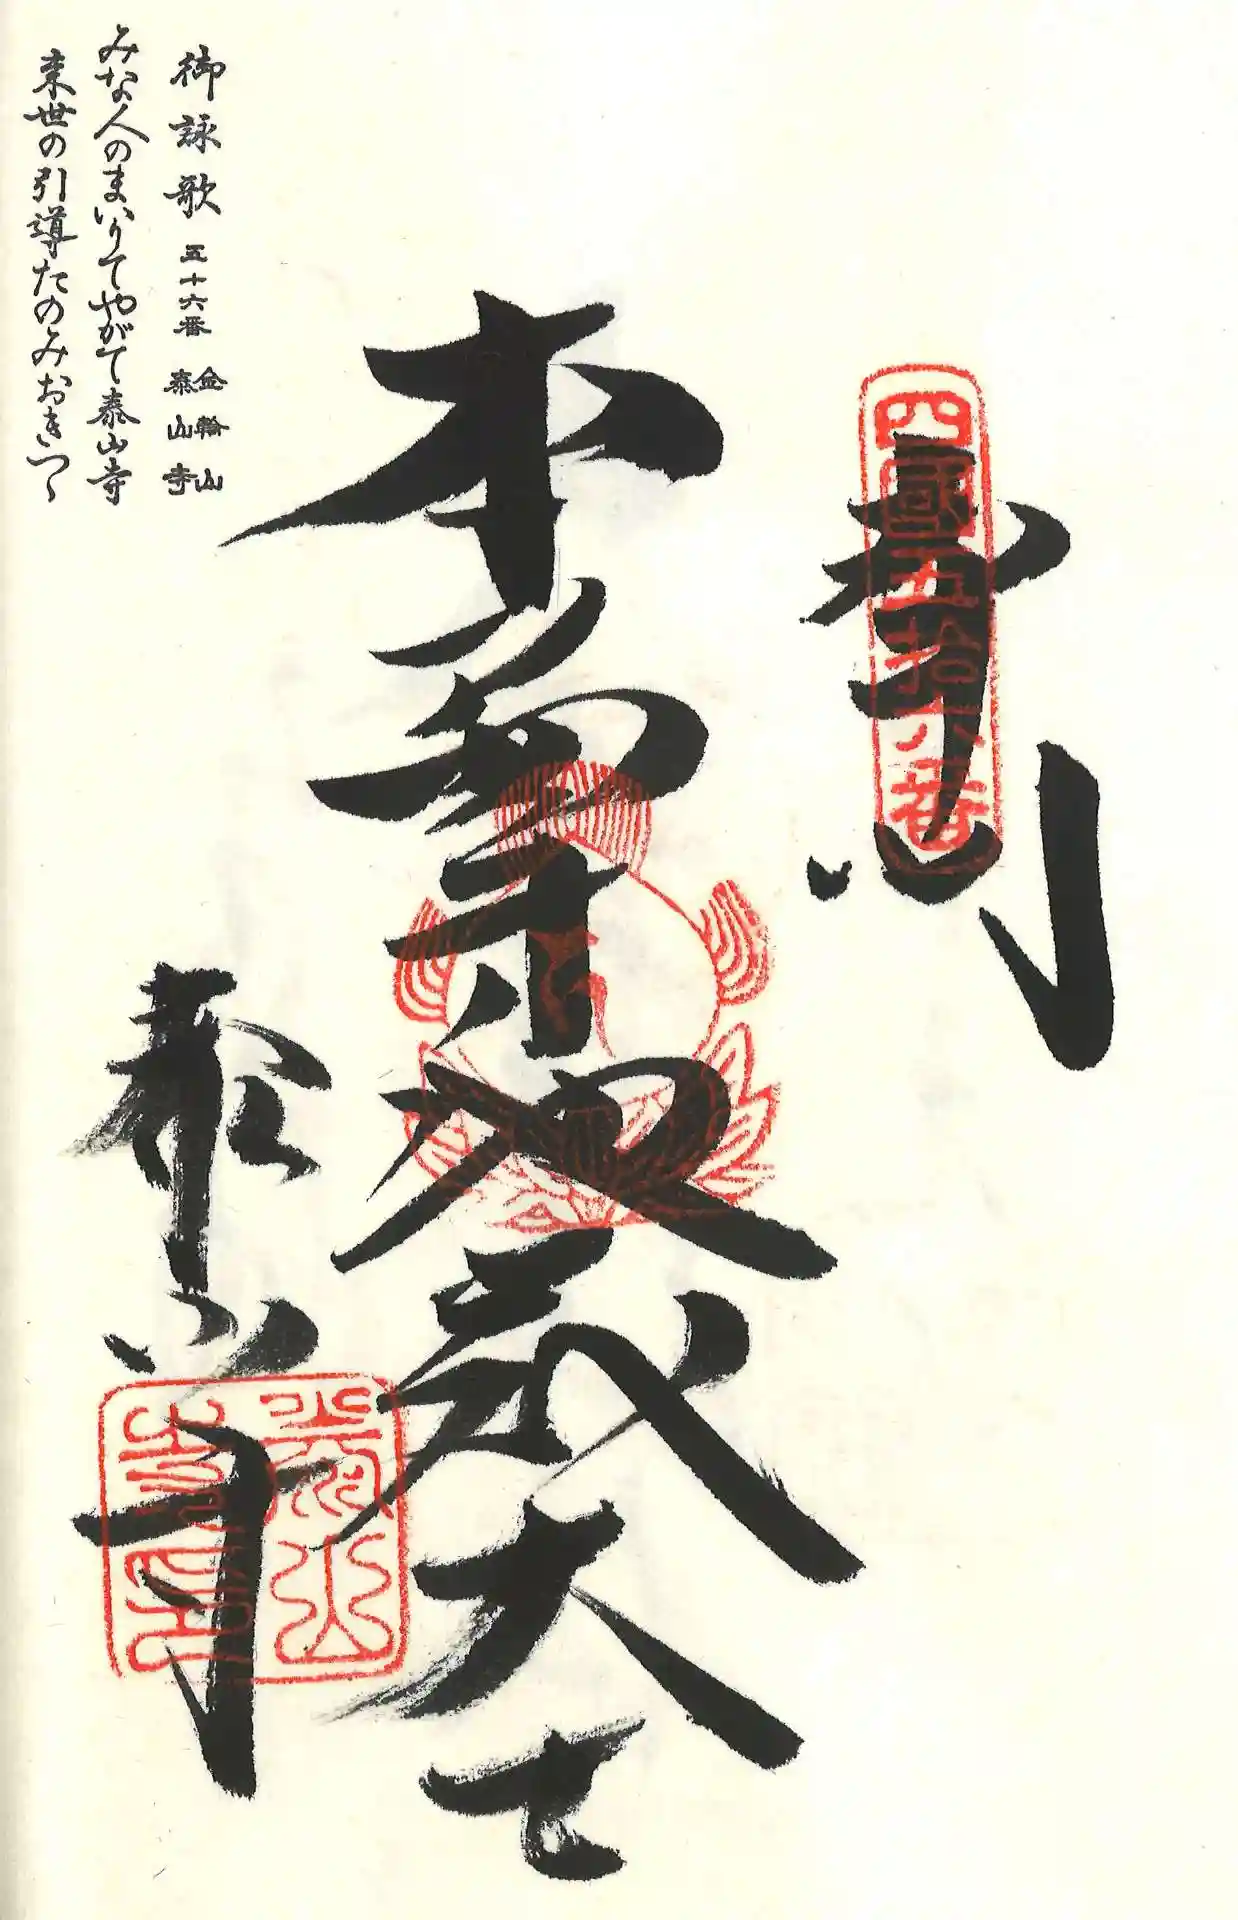 奉納
四國五拾六番
本尊地蔵大士
泰山寺
御詠歌 五十六番 金輪山 泰山寺
みな人のまいりてやがて泰山寺
来世の引導たのみおきつゝ